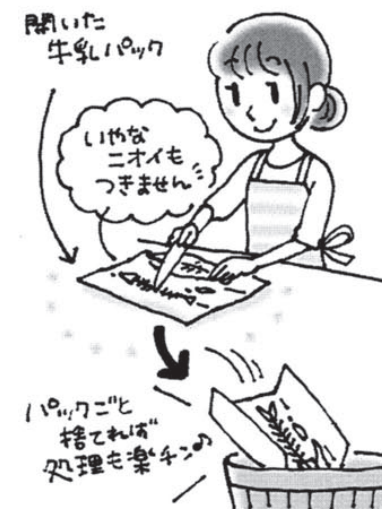 開いた
牛乳パック
いやな
ニオイも
つきません
パックごと
捨てれば
処理も楽チン♪